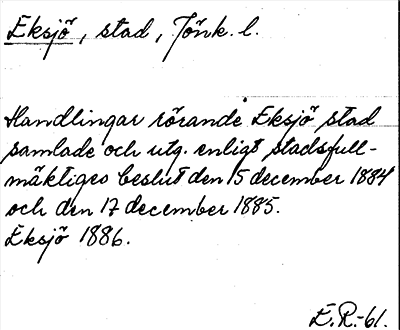 Eksjö, stad, Jönk. l.
Handlingar rörande Eksjö stad
samlade och utg. enligt stadsfull-
mäktiges beslut den 15 december 1884
och den 17 december 1885.
Eksjö 1886.
E.R.-61.